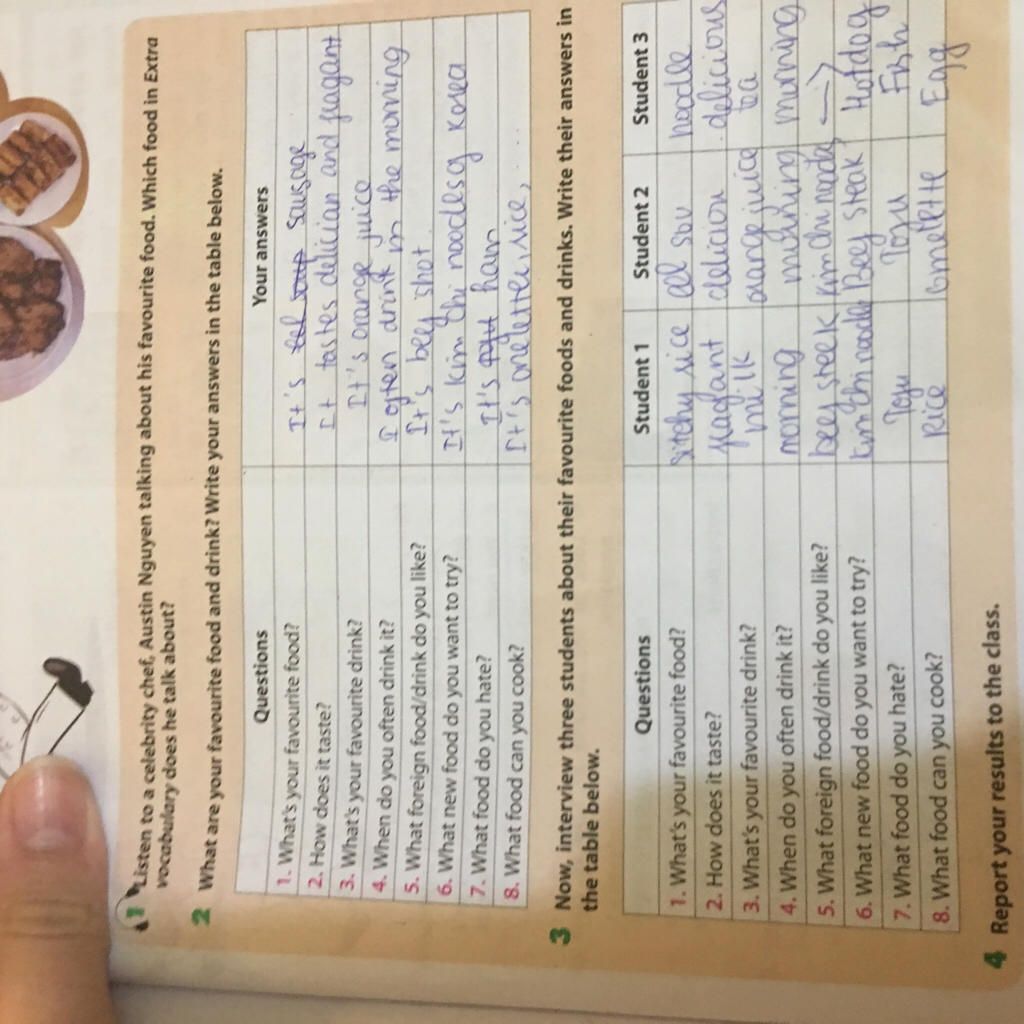 1 Listen to a celebrity chef, Austin Nguyen talking about his favourite food. Which food in Extra
vocabulary does he talk about?
2 What are your favourite food and drink? Write your answers in the table below.
Questions Your answers
1. What's your favourite food? It's sausage
2. How does it taste? It tastes delician and fragant
3. What's your favourite drink? It's orange juice
4. When do you often drink it? I often drink in the morning
5. What foreign food/drink do you like? It's beef shot
6. What new food do you want to try? It's kim chi noodles of Korea
7. What food do you hate? It's ham
8. What food can you cook? It's omelette, rice, ....
3 Now, interview three students about their favourite foods and drinks. Write their answers in
the table below.
Questions Student 1 Student 2 Student 3
1. What's your favourite food? sitchy rice noodle
2. How does it taste? fragant delicion delicious
3. What's your favourite drink? milk orange juice
4. When do you often drink it? morning morning morning
5. What foreign food/drink do you like? beef steek kim chi -->
6. What new food do you want to try? kim chi noodl Beef steak Hotdog
7. What food do you hate? Tofu Tofu Fish
8. What food can you cook? Rice omelette Egg
4 Report your results to the class.